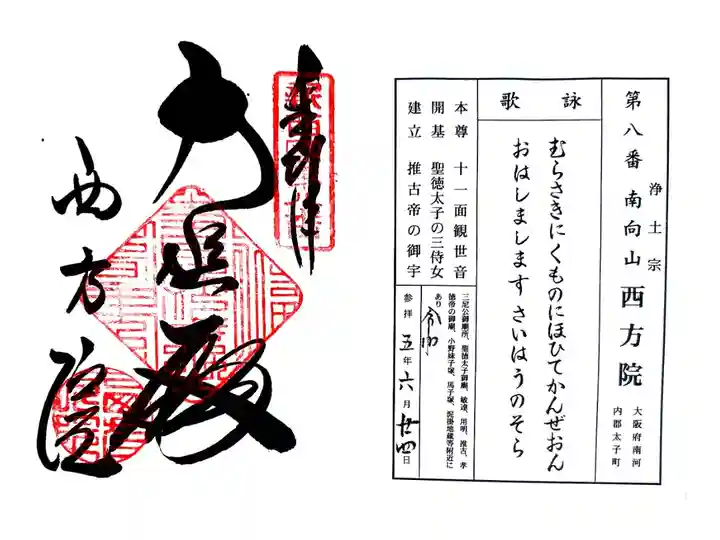 第八番 南向山 西方院
浄土宗
大阪府南河
内郡太子町
詠歌
むらさきにくものにほひてかんぜおん
おはしまします さいはうのそら
本尊 十一面観世音
開基 聖徳太子の三侍女
建立 推古帝の御宇
三尼公御廟所、聖徳太子御廟、敏達、用明、推古、孝
徳帝の御廟、小野妹子塚、馬子塚、泥掛地蔵等附近に
あり
参拝 令和 五年 六月 廿四日
大悲殿
西方院